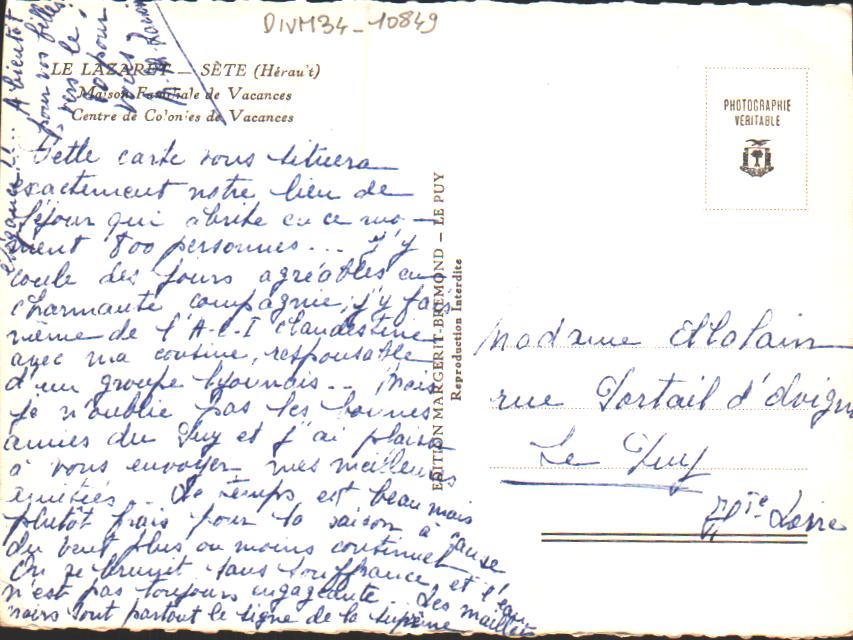 DIVM34-10849
LE LAZARET — SÈTE (Hérault)
Maison Familiale de Vacances
Centre de Colonies de Vacances
Cette carte vous situera
exactement notre lieu de
séjour qui abrite en ce mo-
ment 800 personnes... J'y
coule des jours agréables en
charmante compagnie, j'y fais
même de l'A-C-I clandestine
avec ma cousine, responsable
d'un groupe lyonnais... Mais
je n'oublie pas les bonnes
amies du Puy et j'ai plaisir
à vous envoyer mes meilleures
amitiés.. Le temps est beau mais
plutôt frais pour la saison à cause
du vent plus ou moins continuel
On se brunit sans souffrance, et l'eau
n'est pas toujours engageante... Les maillots
noirs sont partout le signe de la suprême
élégance!!... A bientôt
pour vos filles
pour
vous
EDITION MARGERIT-BREMOND — LE PUY
Reproduction Interdite
PHOTOGRAPHIE
VÉRITABLE
Madame
rue Portail d'Avigno
Le Puy
Hte Loire